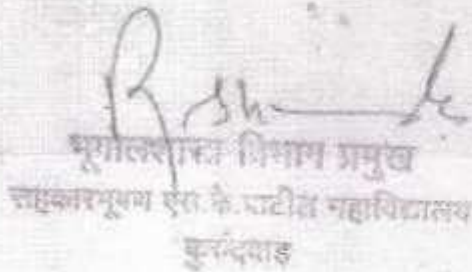 भूगोलशास्त्र विभाग प्रमुख
सहकारभूषण एस.के.पाटील महाविद्यालय
कुरुंदवाड